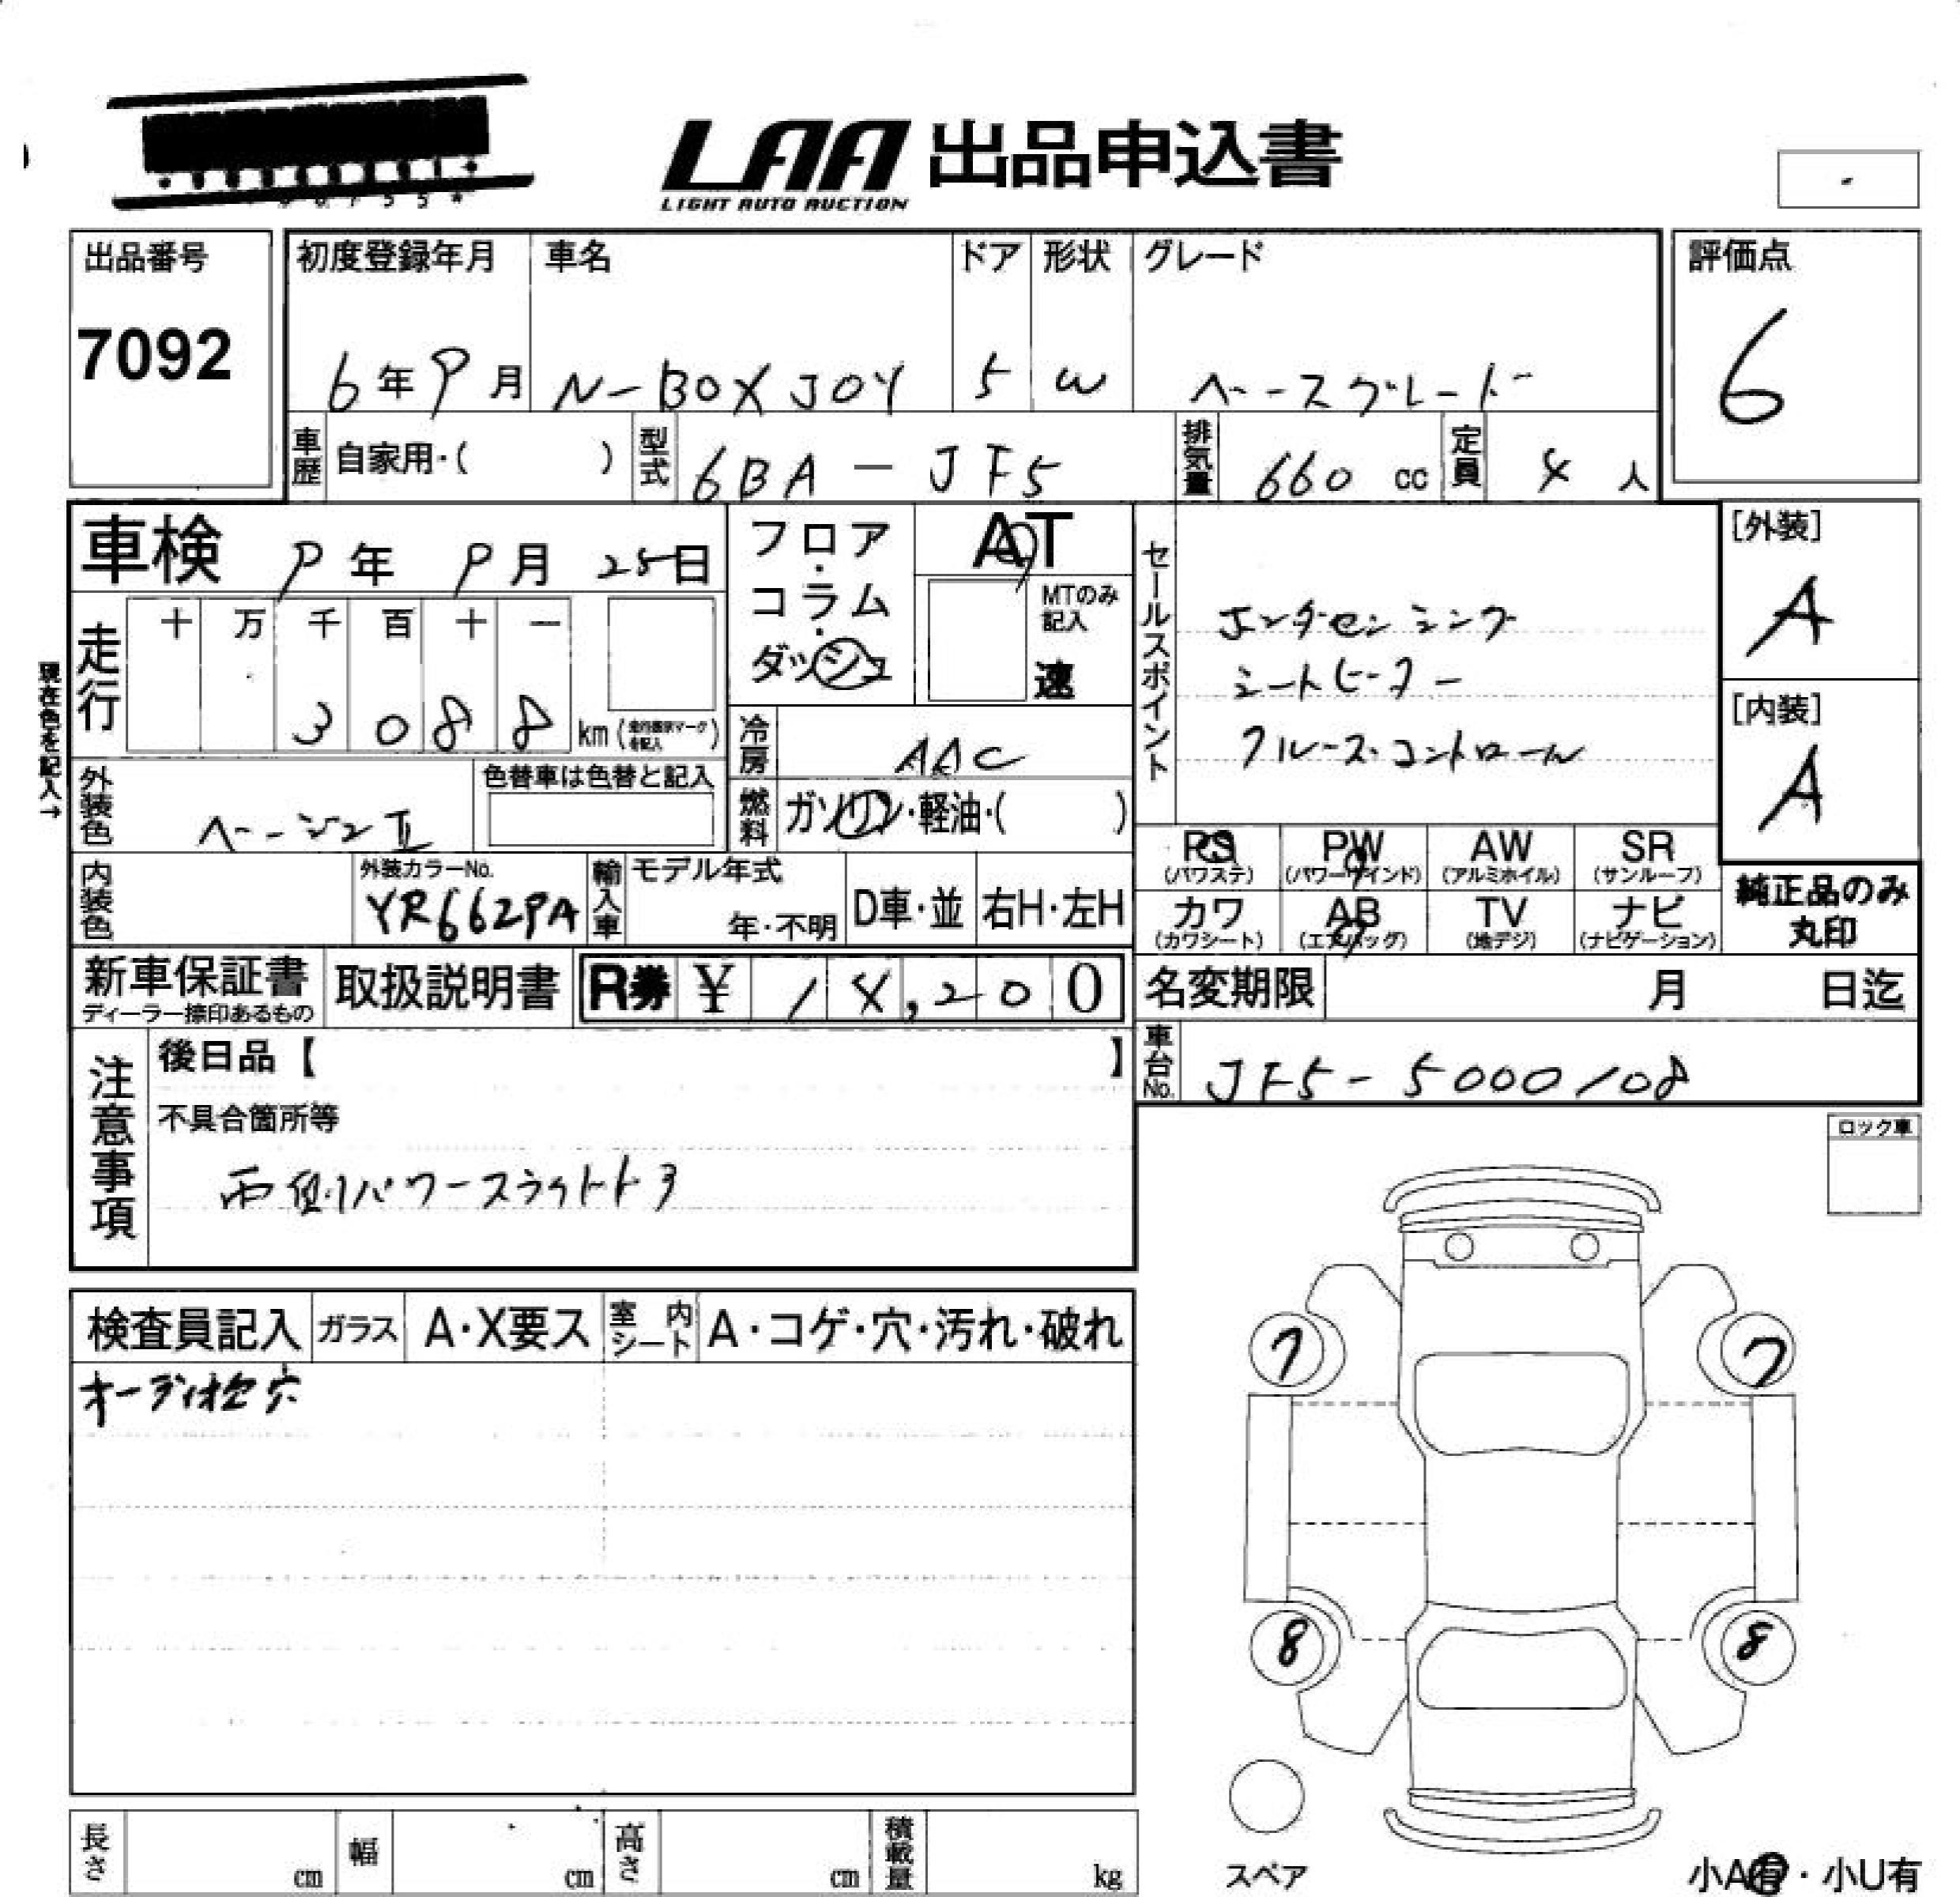 LAA 出品申込書
LIGHT AUTO AUCTION
-
出品番号
7092
初度登録年月 車名 ドア 形状 グレード
6年9月 N-BOX JOY 5 W ベースグレード
評価点
6
車歴 自家用・( ) 型式 6BA-JF5 排気量 660 cc 定員 4 人
車検 9年9月25日
フロア・コラム・ダッシュ
AT
MTのみ記入
速
セールスポイント
ホンダセンシング
シートヒーター
クルーズコントロール
[外装]
A
[内装]
A
現在色を記入→
走行 十 万 千 百 十 一
3 0 8 8 km (走行書状マークを記入)
冷房 AAC
燃料 ガソリン・軽油・( )
外装色 ベージュII
色替車は色替と記入
内装色
外装カラーNo.
YR662PA
輸入車
モデル年式
年・不明
D車・並
右H・左H
PS (パワステ) PW (パワーウインド) AW (アルミホイル) SR (サンルーフ)
カワ (カワシート) AB (エアバッグ) TV (地デジ) ナビ (ナビゲーション)
純正品のみ丸印
新車保証書
ディーラー捺印あるもの
取扱説明書
R券 ¥ 14,200
名変期限 月 日迄
車台No. JF5-5000108
注意事項
後日品【 】
不具合箇所等
両側パワースライドドア
ロック車
検査員記入 ガラス A・X要ス 室内シート A・コゲ・穴・汚れ・破れ
オーディオ空穴
7 7
8 8
スペア
小A有・小U有
長さ cm 幅 cm 高さ cm 積載量 kg